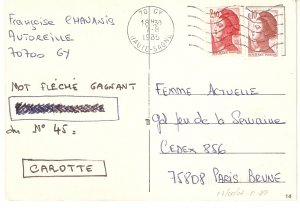 Françoise CHAVANIS
AUTOREILLE
70700 GY
MOT FLÉCHÉ GAGNANT
du N° 45.
CAROTTE
70 GY
18H30
7-8
1985
HAUTE-SAONE
FEMME ACTUELLE
gd jeu de la Semaine
CEDEX 856
75808 PARIS BRUNE